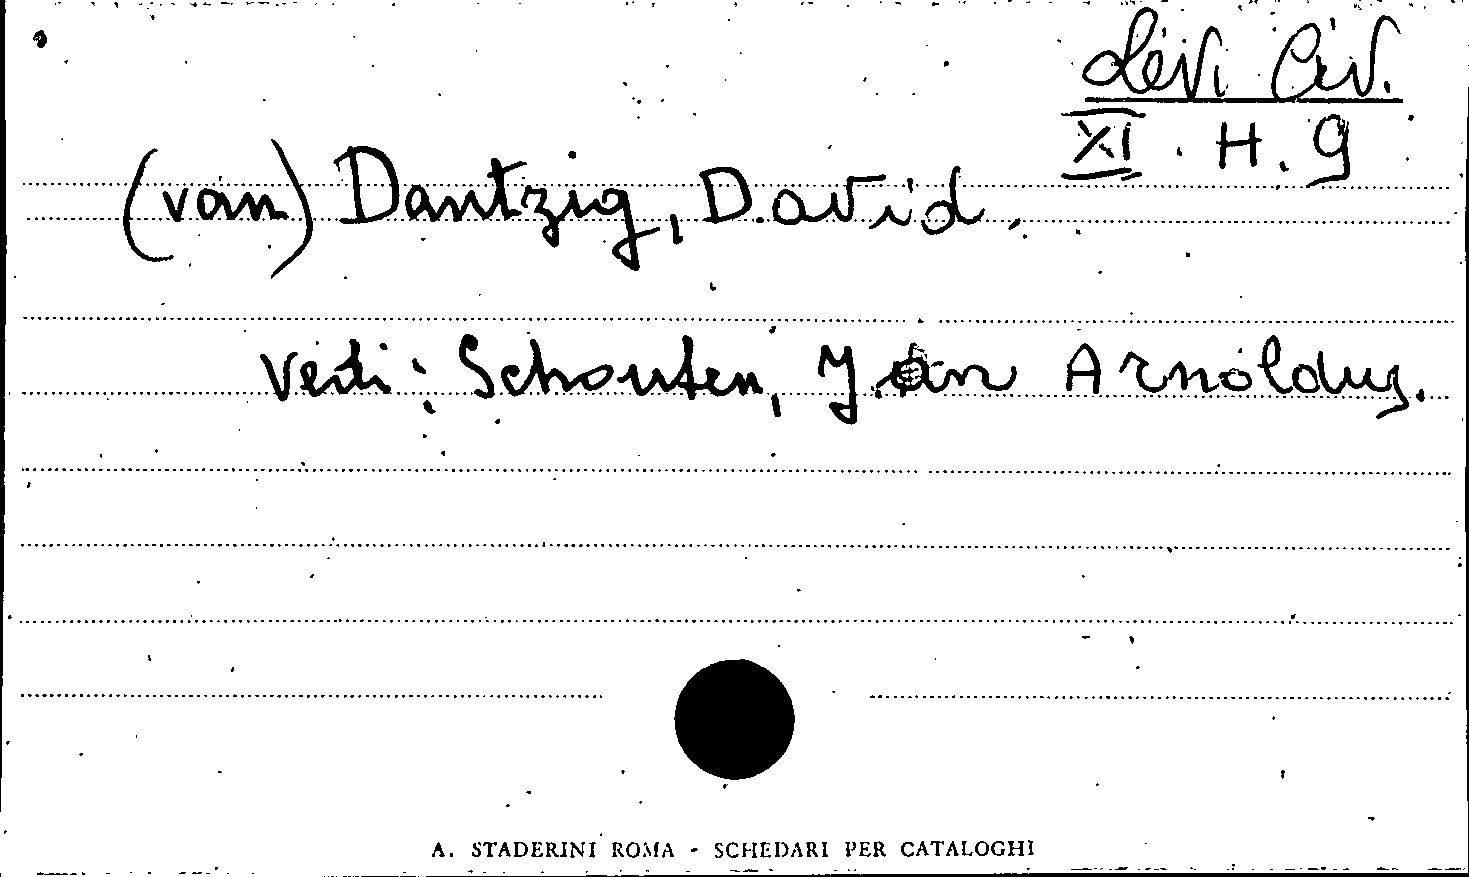 Levi Civ.
XI. H. 9
(van) Dantzig, David.
Vedi: Schouten, Jan Arnoldus.
A. STADERINI ROMA - SCHEDARI PER CATALOGHI